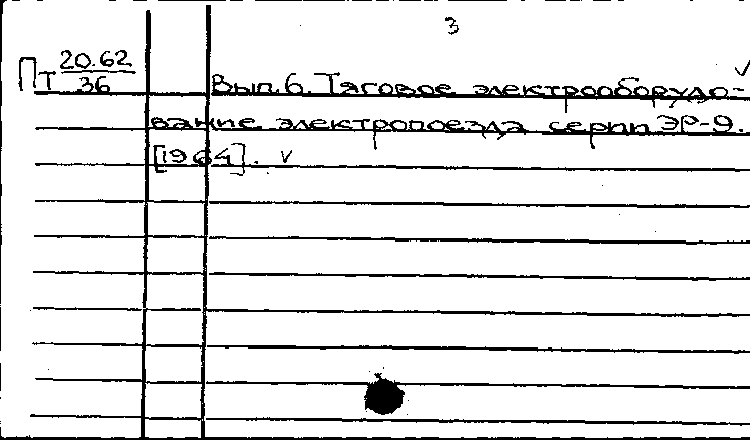 3
Пт 20.62
36
Вып. 6. Тяговое электрооборудо-
вание электропоезда серии ЭР-9.
[1964].